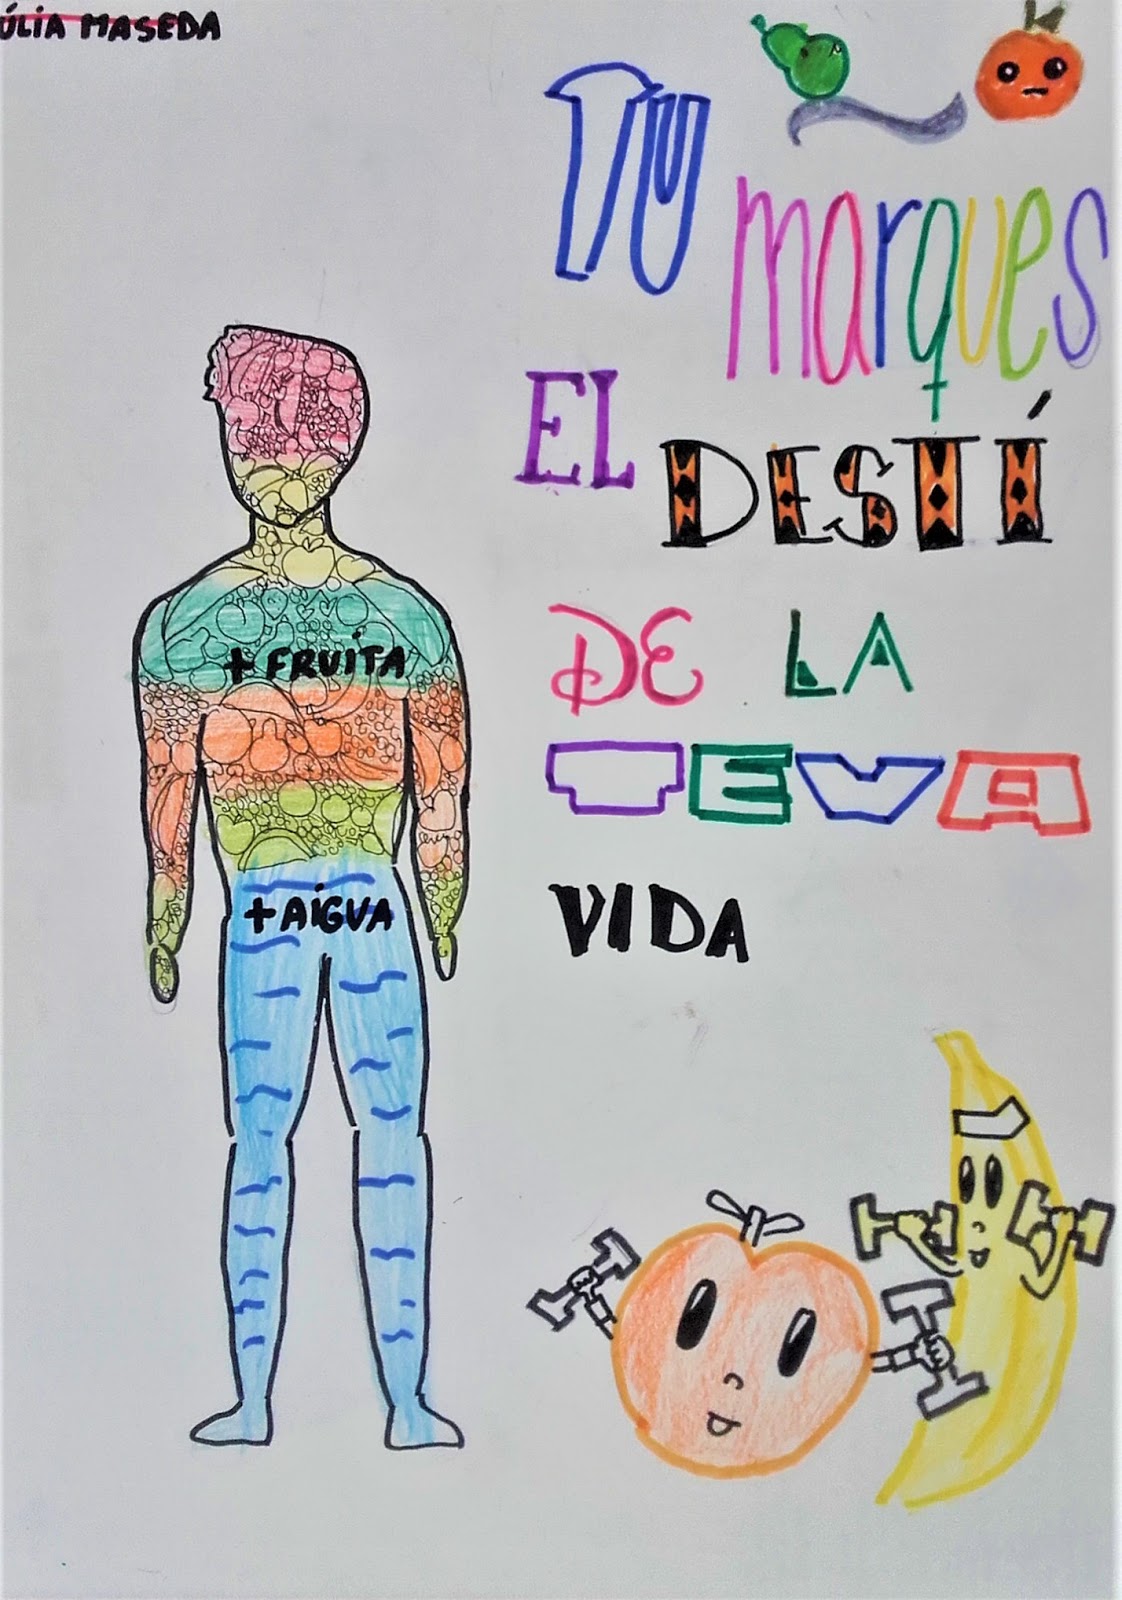 ÚLIA MASEDA
TU
marques
EL
DESTÍ
DE LA
TEVA
VIDA
+ FRUITA
+ AIGUA